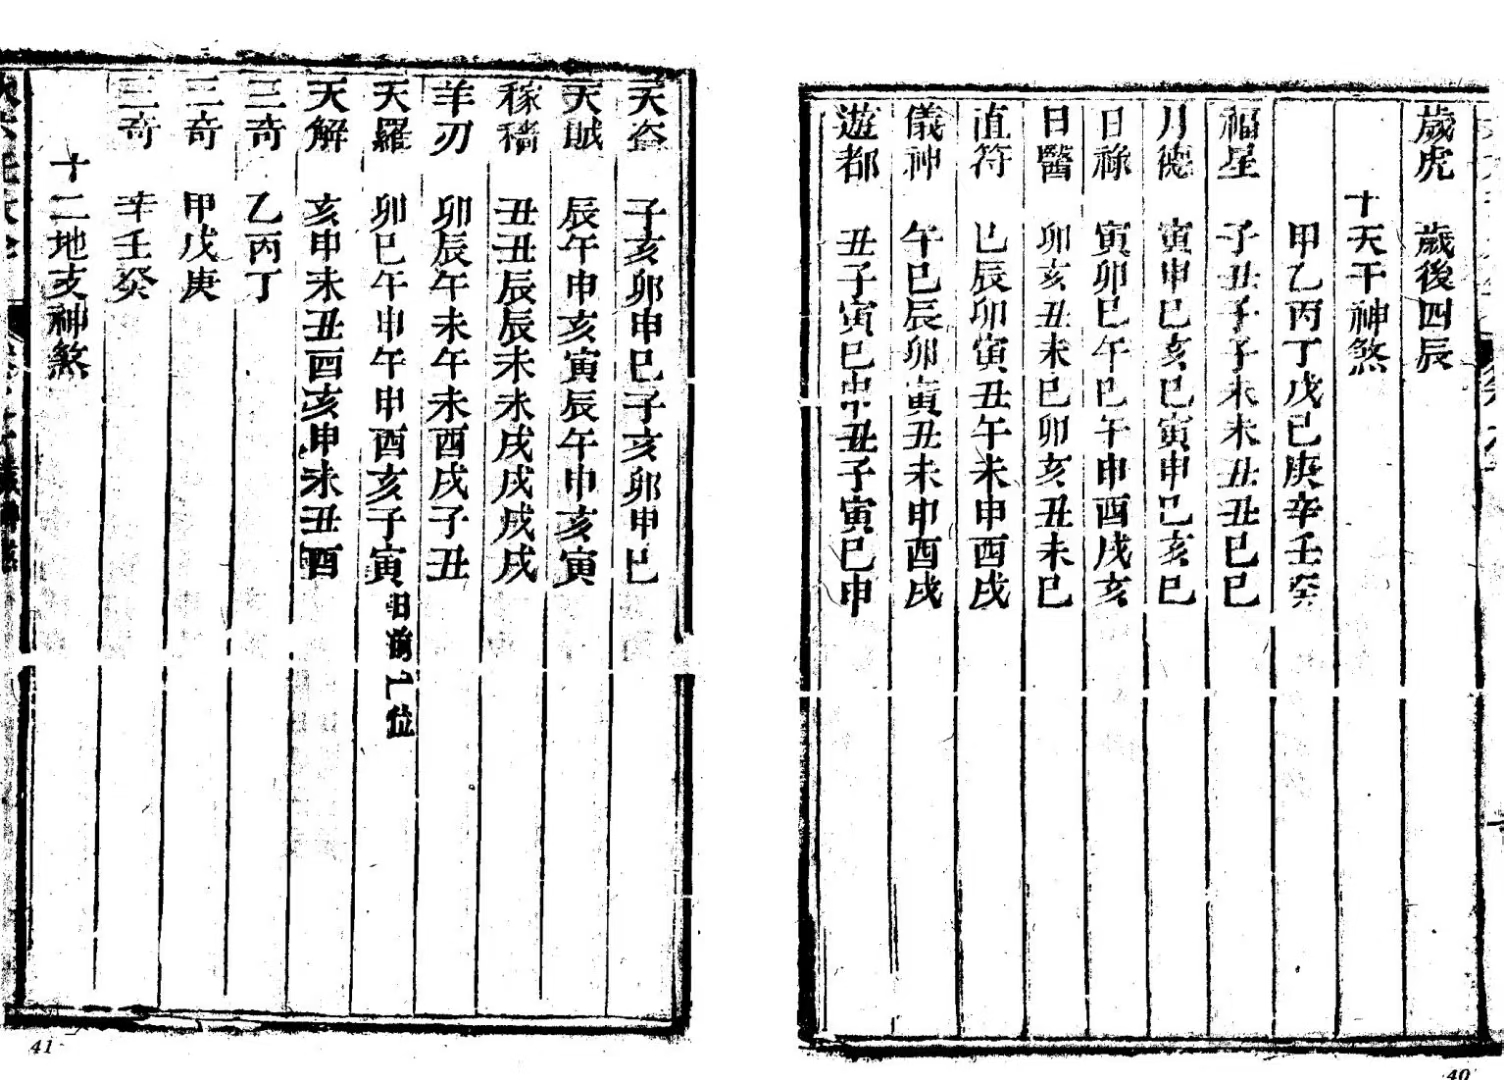 歲虎 歲後四辰
十天干神煞
甲乙丙丁戊己庚辛壬癸
福星 子丑子子未未丑丑巳巳
月德 寅申巳亥巳寅申巳亥巳
日祿 寅卯巳午巳午申酉戌亥
日醫 卯亥丑未巳卯亥丑未巳
直符 巳辰卯寅丑午未申酉戌
儀神 午巳辰卯寅丑未申酉戌
遊都 丑子寅巳申丑子寅巳申
40
天盜 子亥卯申巳子亥卯申巳
天賊 辰午申亥寅辰午申亥寅
稼穡 丑丑辰辰未未戌戌戌戌
羊刃 卯辰午未午未酉戌子丑
天羅 卯巳午申午申酉亥子寅 日前一位
天解 亥申未丑酉亥申未丑酉
三奇 乙丙丁
三奇 甲戊庚
三奇 辛壬癸
十二地支神煞
41